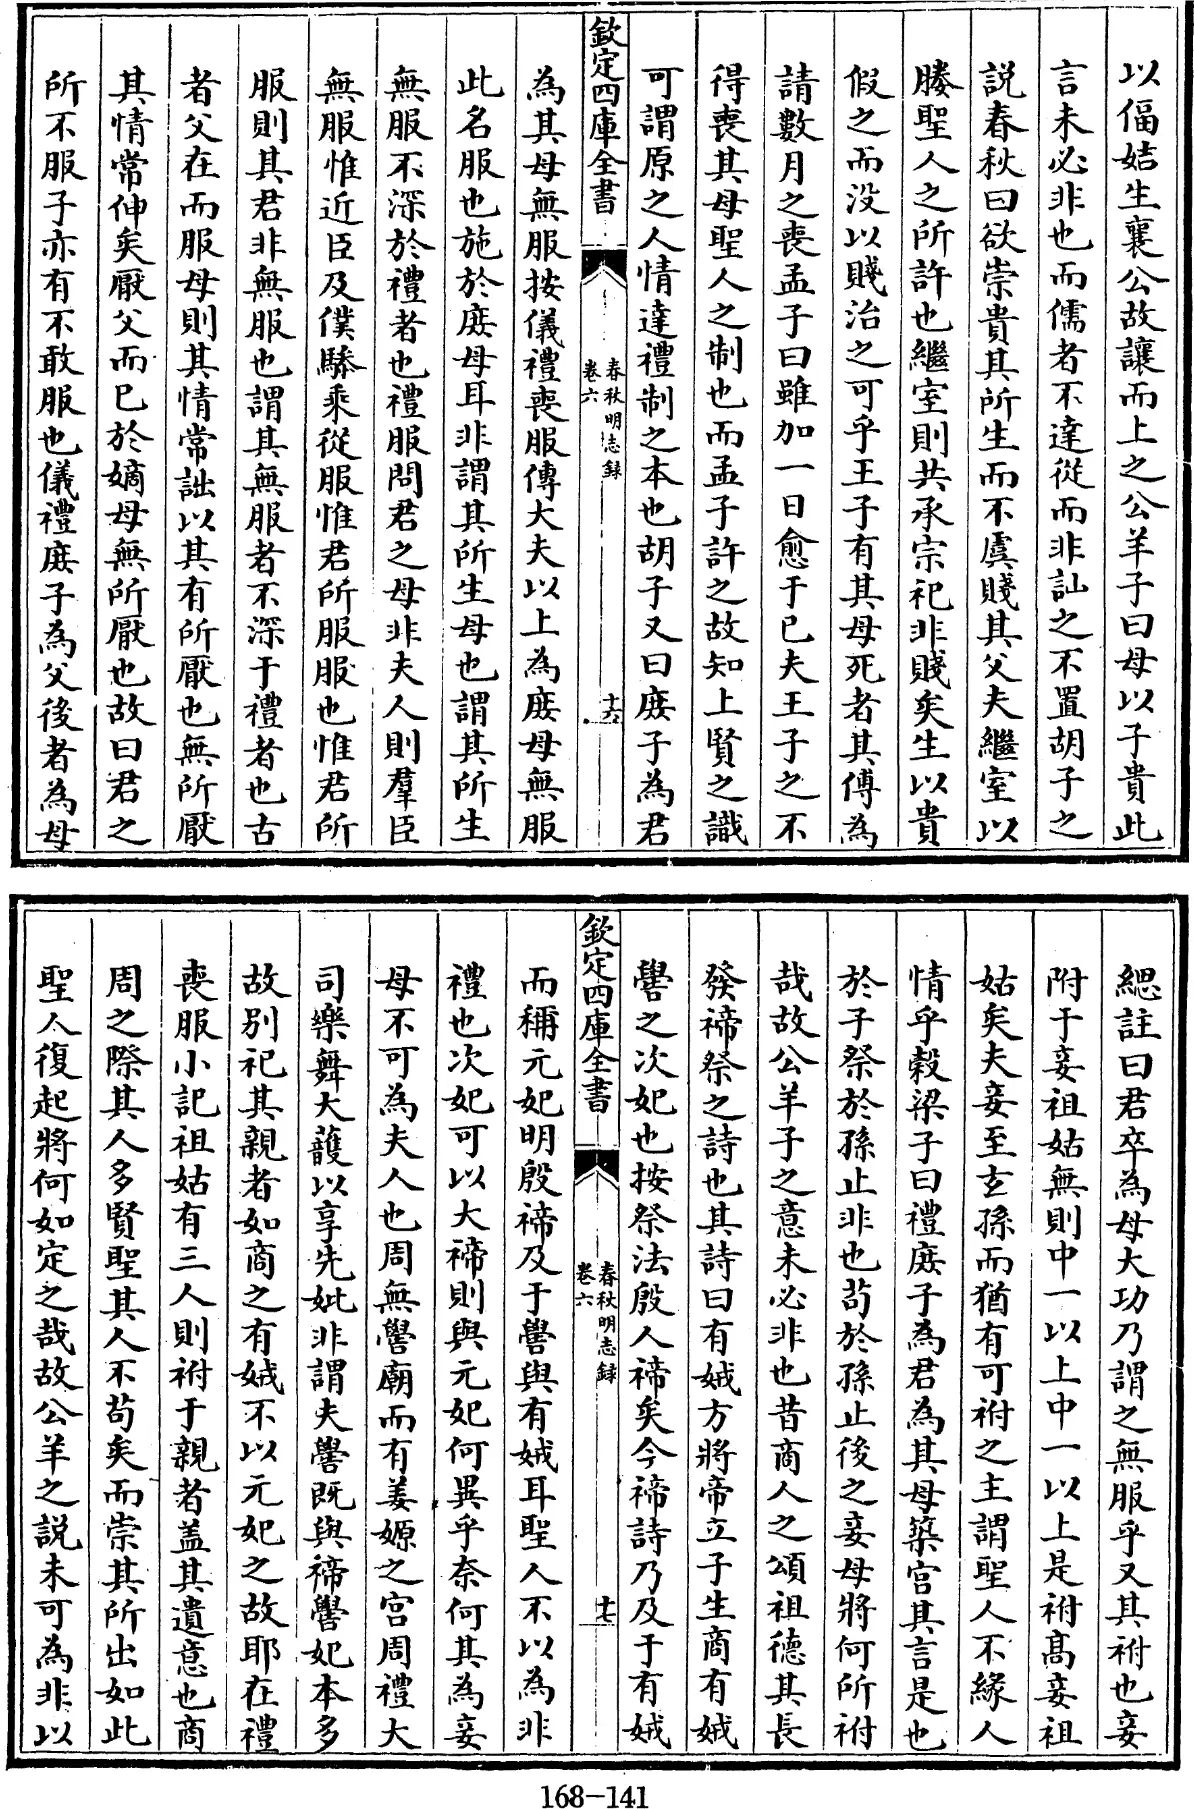 以偪姞生襄公故讓而上之公羊子曰母以子貴此
言未必非也而儒者不達從而非訕之不置胡子之
説春秋曰欲崇貴其所生而不虞賤其父夫繼室以
媵聖人之所許也繼室則共承宗祀非賤矣生以貴
假之而没以賤治之可乎王子有其母死者其傅為
請數月之喪孟子曰雖加一日愈于已夫王子之不
得喪其母聖人之制也而孟子許之故知上賢之識
可謂原之人情達禮制之本也胡子又曰庶子為君
欽定四庫全書
春秋明志録
卷六
十六
為其母無服按儀禮喪服傳大夫以上為庶母無服
此名服也施於庶母耳非謂其所生母也謂其所生
無服不深於禮者也禮服問君之母非夫人則羣臣
無服惟近臣及僕驂乘從服惟君所服服也惟君所
服則其君非無服也謂其無服者不深于禮者也古
者父在而服母則其情常詘以其有所厭也無所厭
其情常伸矣厭父而已於嫡母無所厭也故曰君之
所不服子亦有不敢服也儀禮庶子為父後者為母
緦註曰君卒為母大功乃謂之無服乎又其祔也妾
附于妾祖姑無則中一以上中一以上是祔高妾祖
姑矣夫妾至玄孫而猶有可祔之主謂聖人不緣人
情乎穀梁子曰禮庶子為君為其母築宫其言是也
於子祭於孫止非也茍於孫止後之妾母將何所祔
哉故公羊子之意未必非也昔商人之頌祖德其長
發禘祭之詩也其詩曰有娀方將帝立子生商有娀
嚳之次妃也按祭法殷人禘矣今禘詩乃及于有娀
欽定四庫全書
春秋明志録
卷六
十七
而稱元妃明殷禘及于嚳與有娀耳聖人不以為非
禮也次妃可以大禘則與元妃何異乎奈何其為妾
母不可為夫人也周無嚳廟而有姜嫄之宫周禮大
司樂舞大濩以享先妣非謂夫嚳既與禘嚳妃本多
故别祀其親者如商之有娀不以元妃之故耶在禮
喪服小記祖姑有三人則祔于親者盖其遺意也商
周之際其人多賢聖其人不茍矣而崇其所出如此
聖人復起將何如定之哉故公羊之説未可為非以
168-141